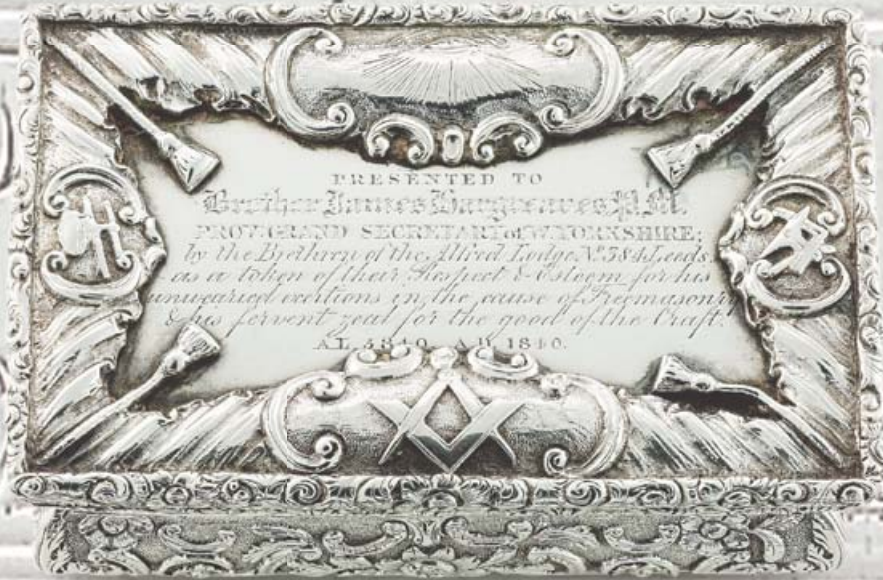 PRESENTED TO
Brother James Hargreaves P.M.
PROV. GRAND SECRETARY of W. YORKSHIRE;
by the Brethren of the Alfred Lodge, No. 384, Leeds,
as a token of their Respect & Esteem for his
unwearied exertions in the cause of Freemasonry
& his fervent zeal for the good of the Craft.
A.L. 5840. A.D. 1840.